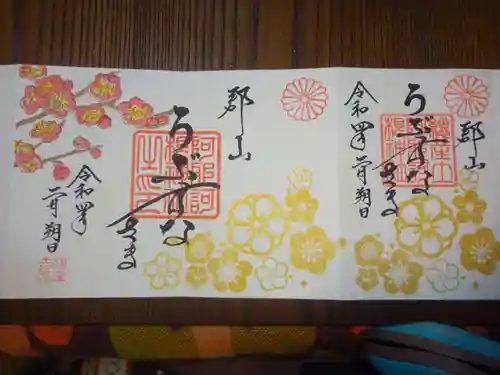 郡山
うぶすな
さま
令和四年
二月朔日
郡山
うぶすな
さま
令和四年
二月朔日